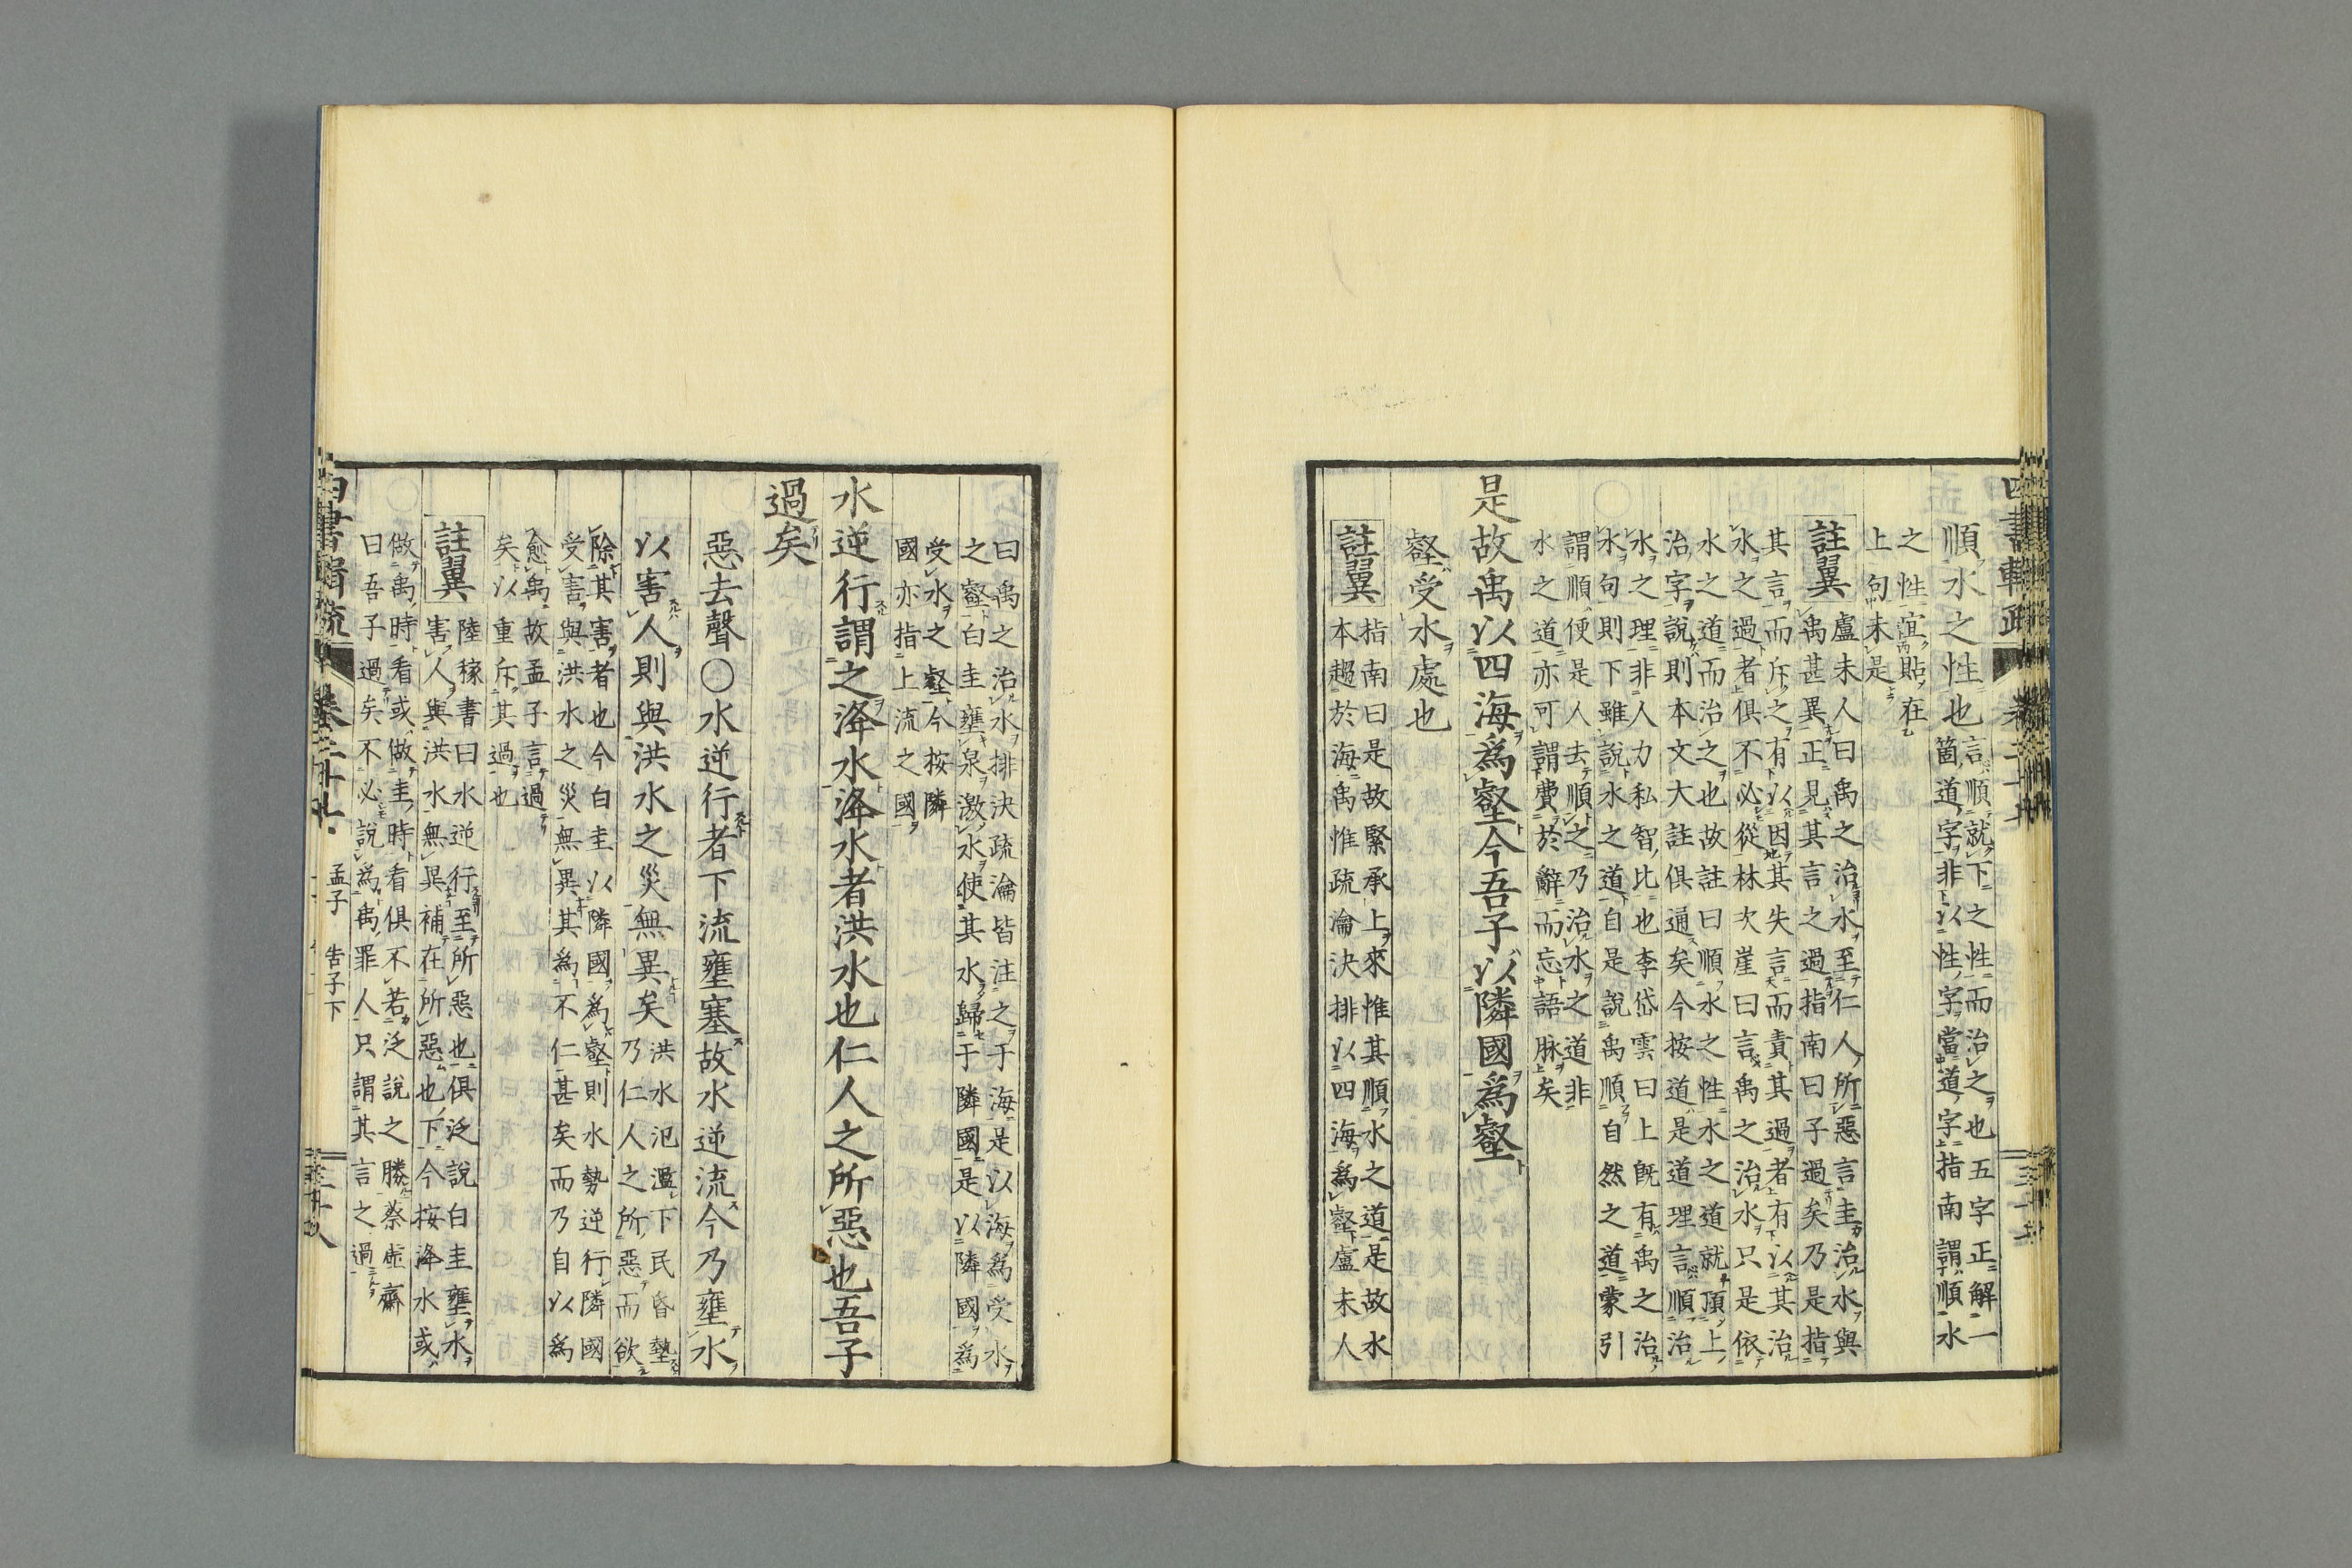 順水之性也
言順就下之性而治之也五字正解一
箇道字非以性字當道字指南謂順水
之性宜貼在
上句未是
註翼
盧未人曰禹之治水至仁人所惡言圭治水與
禹甚異正見其言之過指南曰子過矣乃是指
其言而斥之有以因其失言而責其過者有以其治
水之過者俱不必從林次崖曰言禹之治水只是依
水之道而治之也故註曰順水之性水之道就頂上
治字說則本文大註俱通矣今按道是道理言順治
水之理非人力私智比也李岱雲曰上既有禹之治
水句則下雖說水之道自是說禹順自然之道蒙引
謂順便是人去順之乃治水之道非
水之道亦可謂費於辭而忘語脉矣
是故禹以四海爲壑今吾子以隣國爲壑
壑受水處也
註翼
指南曰是故緊承上來惟其順水之道是故水
本趨於海禹惟疏瀹決排以四海爲壑盧未人
曰禹之治水排決疏瀹皆注之于海是以海爲受水
之壑白圭壅泉激水使其水歸于隣國是以隣國爲
受水之壑今按隣
國亦指上流之國
水逆行謂之洚水洚水者洪水也仁人之所惡也吾子
過矣
惡去聲○水逆行者下流壅塞故水逆流今乃壅水
以害人則與洪水之災無異矣
洪水氾濫下民昏墊
乃仁人之所惡而欲
除其害者也今白圭以隣國爲壑則水勢逆行隣國
受害與洪水之災無異其爲不仁甚矣而乃自以爲
愈禹故孟子言過
矣以重斥其過也
註翼
陸稼書曰水逆行至所惡也俱泛說白圭壅水
害人與洪水無異補在所惡也下今按洚水或
做禹時看或做圭時看俱不若泛說之勝蔡虛齋
曰吾子過矣不必說爲禹罪人只謂其言之過
孟子 告子下